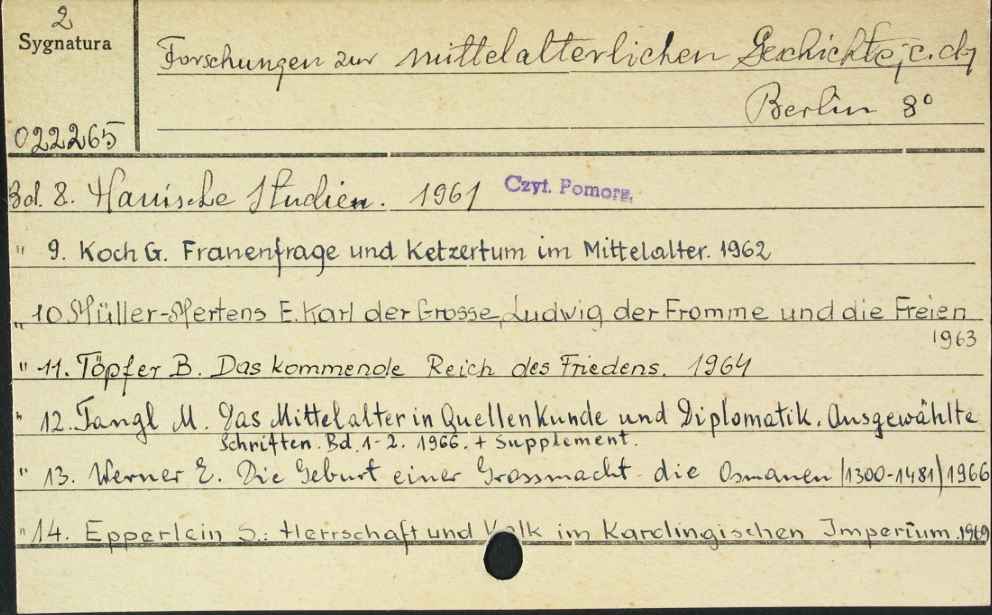 2
Sygnatura
022265
Forschungen zur mittelalterlichen Geschichte; c. d.
Berlin 8°
Bd. 8. Hansische Studien. 1961 Czyt. Pomorz.
" 9. Koch G. Frauenfrage und Ketzertum im Mittelalter. 1962
" 10 Müller-Mertens E. Karl der Grosse, Ludwig der Fromme und die Freien
1963
" 11. Töpfer B. Das kommende Reich des Friedens. 1964
" 12. Tangl M. Das Mittelalter in Quellenkunde und Diplomatik. Ausgewählte
Schriften. Bd. 1-2. 1966. + Supplement.
" 13. Werner E. Die Geburt einer Grossmacht - die Osmanen (1300-1481) 1966
" 14. Epperlein S.: Herrschaft und Volk im Karolingischen Imperium. 1969